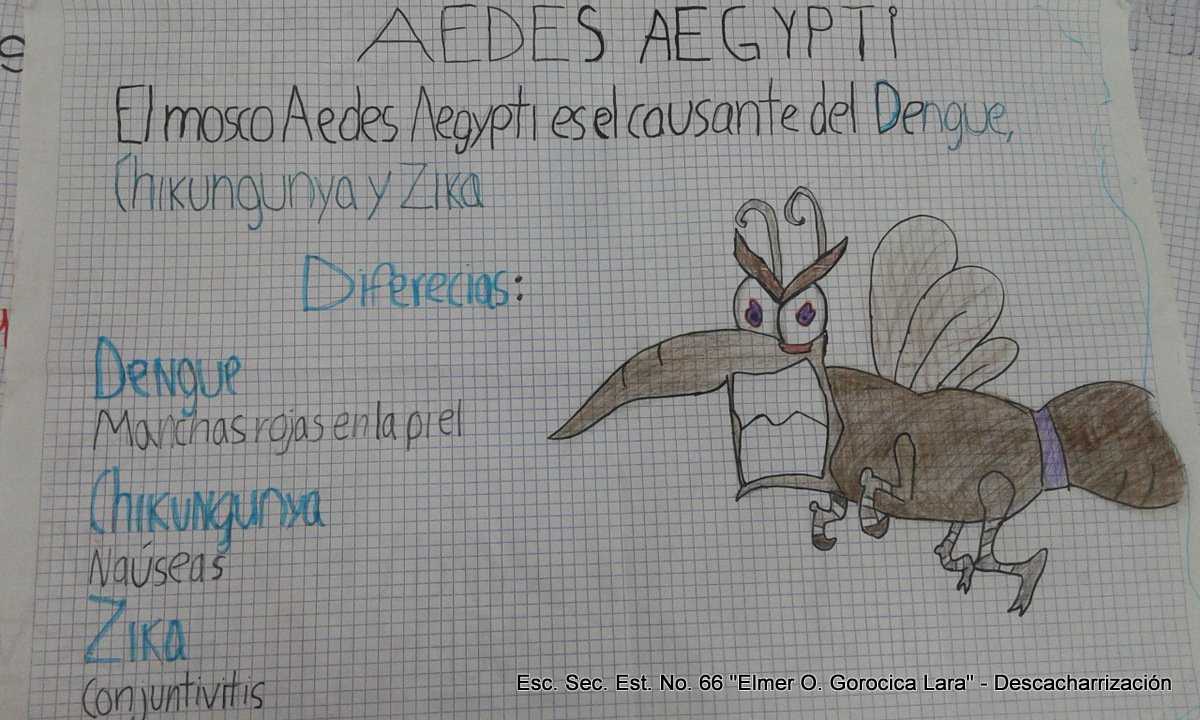 AEDES AEGYPTI
El mosco Aedes Aegypti es el causante del Dengue,
Chikungunya y Zika
Diferecias:
Dengue
Manchas rojas en la piel
Chikungunya
Naúseas
Zika
Conjuntivitis
Esc. Sec. Est. No. 66 "Elmer O. Gorocica Lara" - Descacharrización